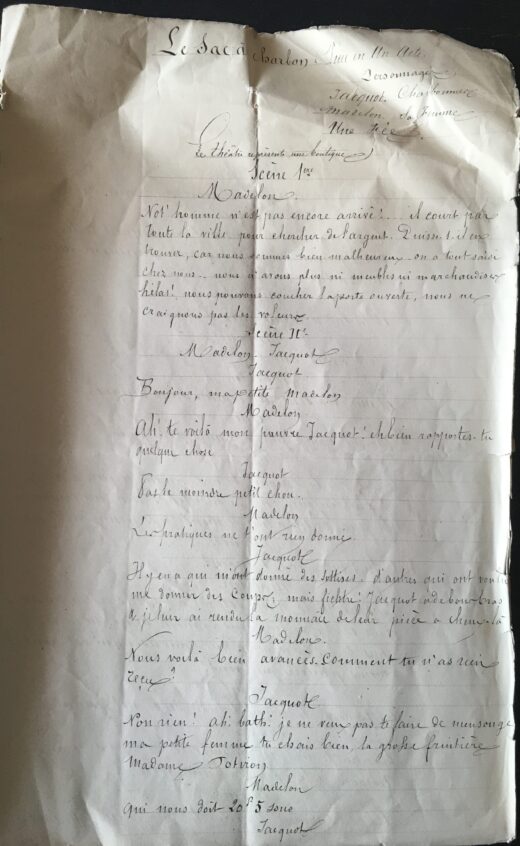 Le Sac à Charbon Pièce en Un Acte
Personnages
Jacquot. Charbonnier
Madelon. Sa Femme
Une Fée
Le théâtre représente une boutique
Scène 1ère
Madelon.
Not' homme n'est pas encore arrivé!... il court par
toute la ville pour chercher de l'argent. Puisse-t-il en
trouver, car nous sommes bien malheureux. on a tout saisi
chez nous.. nous n'avons plus ni meubles ni marchandises
hélas! nous pouvons coucher la porte ouverte, nous ne
craignons pas les voleurs
Scène IIe
Madelon. Jacquot
Jacquot
Bonjour, ma petite Madelon
Madelon
Ah! te voilà mon pauvre Jacquot! eh bien rapportes-tu
quelque chose
Jacquot
Pas le moindre petit chou.
Madelon
Les pratiques ne t'ont rien donné
Jacquot
Il y en a qui m'ont donné des sottises. d'autres qui ont voulu
me donner des coups, mais fichtre! Jacquot a de bons bras
& je leur ai rendu la monnaie de leur pièce
Madelon.
Nous voilà bien avancés. Comment tu n'as rien
reçu?
Jacquot
Non rien! ah! bath! je ne veux pas te faire de mensonge
ma petite femme tu chais bien, la grosse fruitière
Madame
Madelon
qui nous doit 20f 5 sous
Jacquot